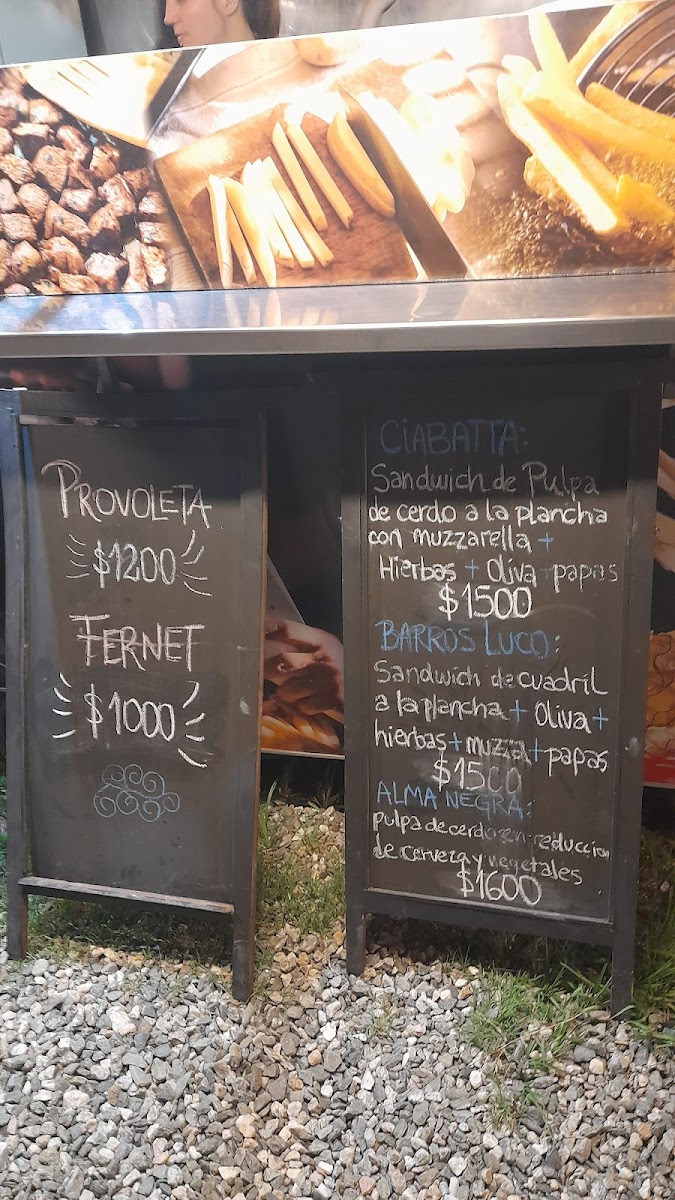 PROVOLETA
$1200
FERNET
$1000
CIABATTA:
Sandwich de Pulpa
de cerdo a la plancha
con muzzarella +
Hierbas + Oliva + papas
$1500
BARROS LUCO:
Sandwich de cuadril
a la plancha + Oliva +
hierbas + muzza + papas
$1500
ALMA NEGRA:
pulpa de cerdo en reduccion
de cerveza y vegetales
$1600